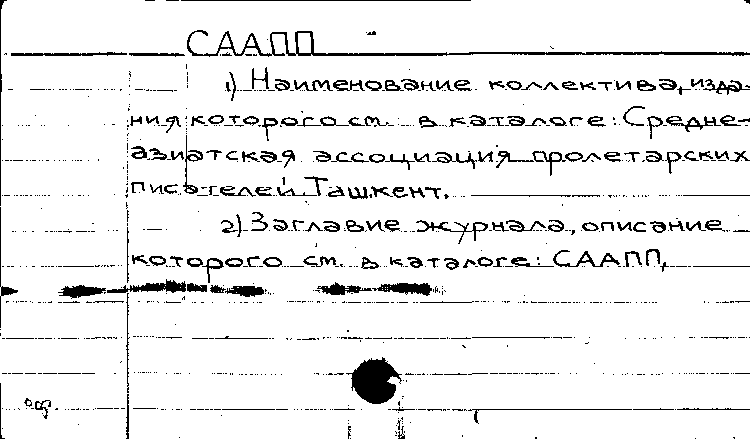 СААПП
1) Наименование коллектива, изда-
ния которого см. в каталоге: Средне-
азиатская ассоциация пролетарских
писателей. Ташкент.
2) Заглавие журнала, описание
которого см. в каталоге: СААПП,